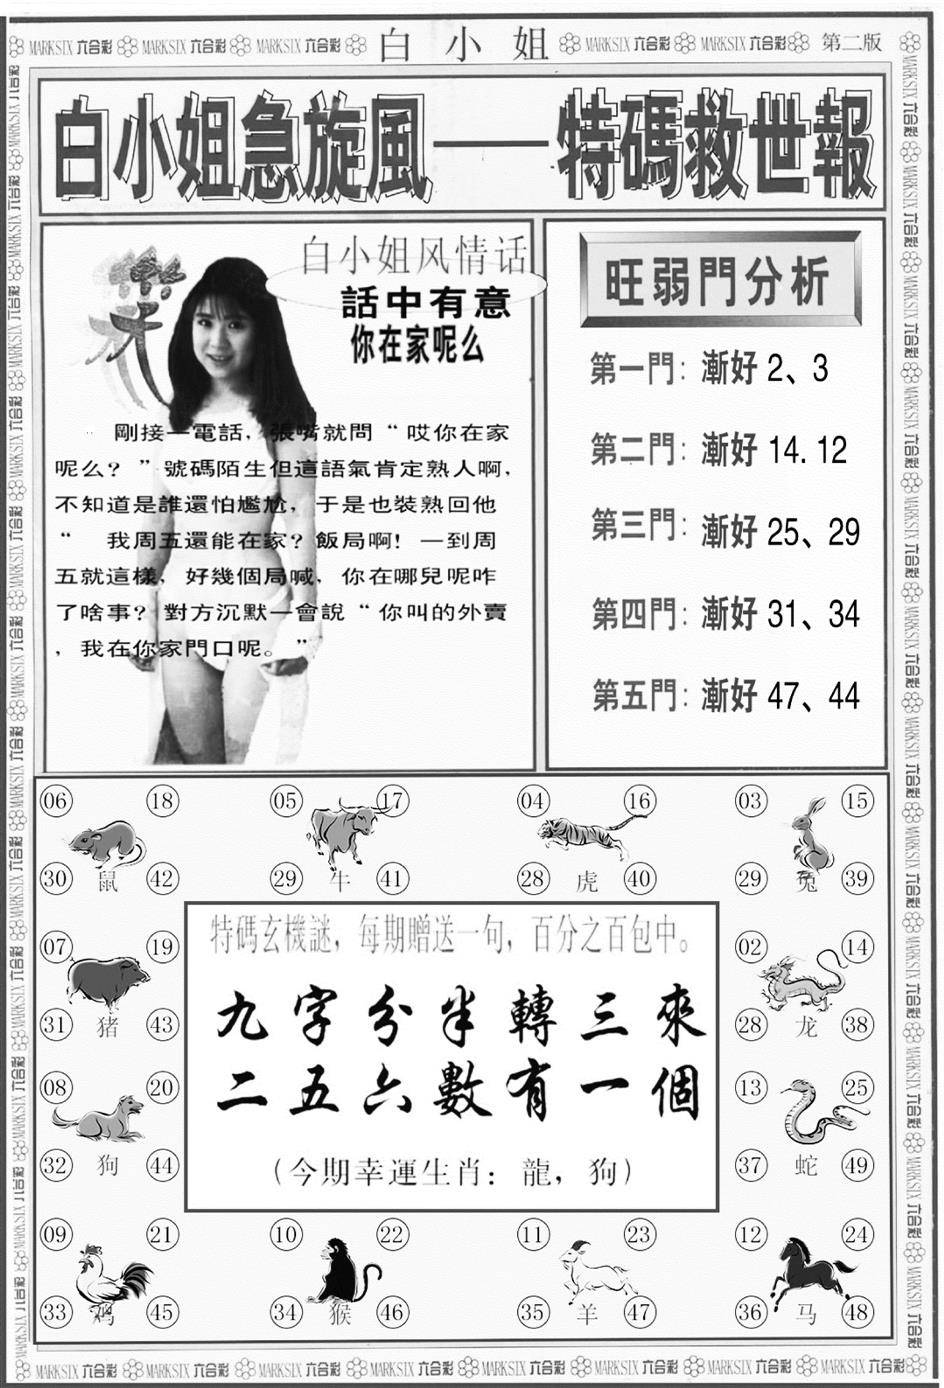 MARKSIX 六合彩 MARKSIX 六合彩 MARKSIX 六合彩 白小姐 MARKSIX 六合彩 MARKSIX 六合彩 第二版
白小姐急旋風——特碼救世報
樂
白小姐风情话
話中有意
你在家呢么
剛接一電話，張嘴就問“哎你在家
呢么？”號碼陌生但這語氣肯定熟人啊，
不知道是誰還怕尷尬，于是也裝熟回他
“ 我周五還能在家？飯局啊！一到周
五就這樣，好幾個局喊，你在哪兒呢咋
了啥事？對方沉默一會說“你叫的外賣
，我在你家門口呢。”
旺弱門分析
第一門：漸好 2、3
第二門：漸好 14. 12
第三門：漸好 25、29
第四門：漸好 31、34
第五門：漸好 47、44
06 18 05 17 04 16 03 15
30 鼠 42 29 牛 41 28 虎 40 29 兔 39
特碼玄機謎，每期贈送一句，百分之百包中。
07 19 02 14
九字分半轉三來
31 猪 43 28 龙 38
08 20 13 25
二五六數有一個
32 狗 44 37 蛇 49
（今期幸運生肖：龍，狗）
09 21 10 22 11 23 12 24
33 鸡 45 34 猴 46 35 羊 47 36 马 48
MARKSIX 六合彩 MARKSIX 六合彩 MARKSIX 六合彩 MARKSIX 六合彩 MARKSIX 六合彩 MARKSIX 六合彩 MARKSIX 六合彩 MARKSIX 六合彩